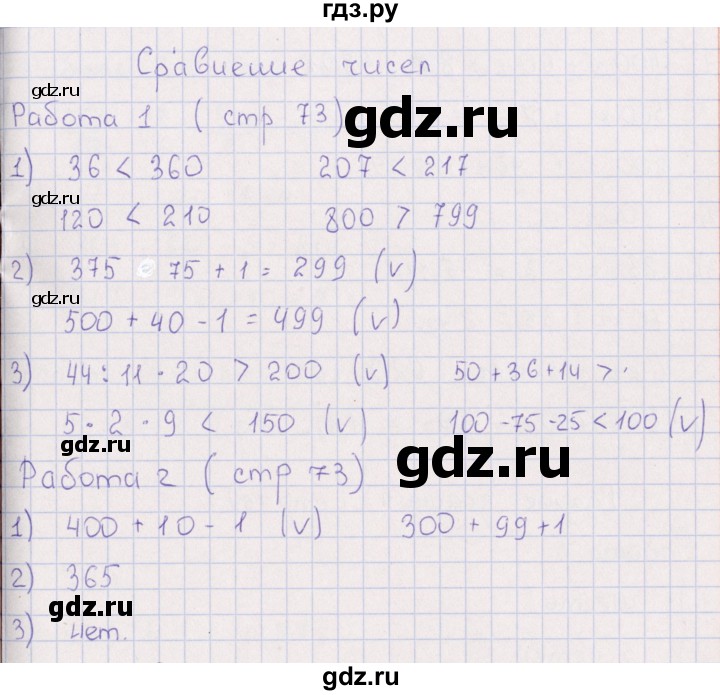 гдз.ру
Сравнение чисел
gdz.ru
Работа 1 ( стр 73)
gdz.ru
1) 36 < 360 207 < 217
gdz.ru
120 < 210 800 > 799
2) 375 - 75 + 1 = 299 (v)
gdz.ru
500 + 40 - 1 = 499 (v)
3) 44 : 11 · 20 > 200 (v) 50 + 36 + 14 > ·
5 · 2 · 9 < 150 (v) 100 - 75 - 25 < 100 (v)
gdz.ru
gdz.ru
Работа 2 ( стр 73)
1) 400 + 10 - 1 (v) 300 + 99 + 1
2) 365
gdz.ru
3) Нет.
gdz.ru
gdz.ru